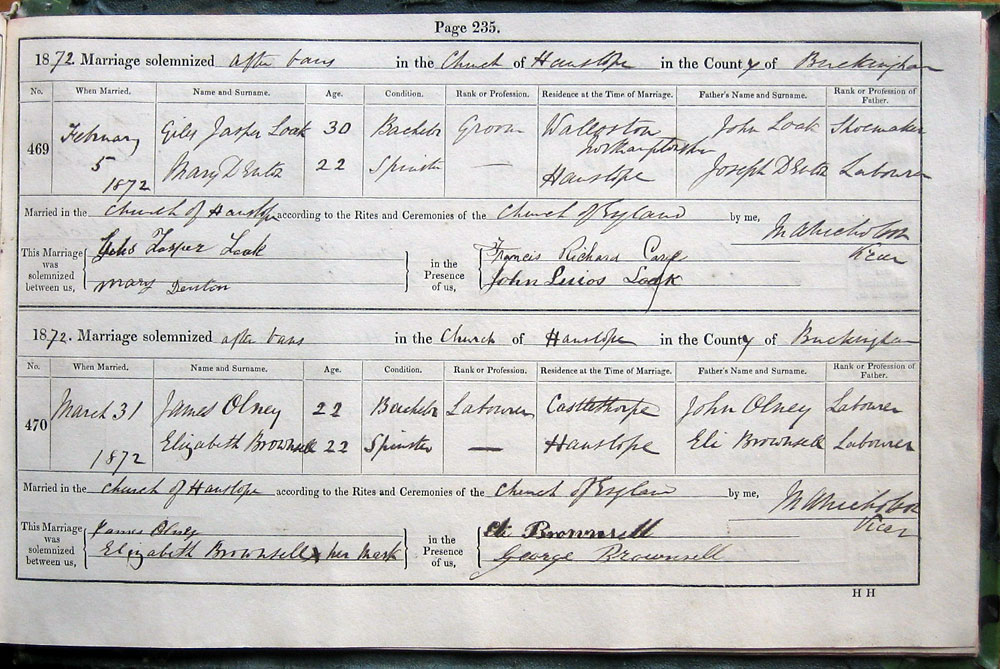 Page 235.
1872. Marriage solemnized after bans in the Church of Hanslope in the County of Buckingham
No. When Married. Name and Surname. Age. Condition. Rank or Profession. Residence at the Time of Marriage. Father's Name and Surname. Rank or Profession of Father.
469 February 5 1872 Giles Jasper Look 30 Bachelor Groom Northamptonshire John Look Shoemaker
Mary Denton 22 Spinster — Hanslope Joseph Denton Labourer
Married in the Church of Hanslope according to the Rites and Ceremonies of the Church of England by me,
Vicar
This Marriage was solemnized between us, Giles Jasper Look in the Presence of us, Francis Richard
Mary Denton John Look
1872. Marriage solemnized after bans in the Church of Hanslope in the County of Buckingham
No. When Married. Name and Surname. Age. Condition. Rank or Profession. Residence at the Time of Marriage. Father's Name and Surname. Rank or Profession of Father.
470 March 31 1872 James Olney 22 Bachelor Labourer Castlethorpe John Olney Labourer
Elizabeth Brownsell 22 Spinster — Hanslope Eli Brownsell Labourer
Married in the Church of Hanslope according to the Rites and Ceremonies of the Church of England by me,
Vicar
This Marriage was solemnized between us, James Olney in the Presence of us, Eli Brownsell
Elizabeth Brownsell x her Mark George Brownsell
H H